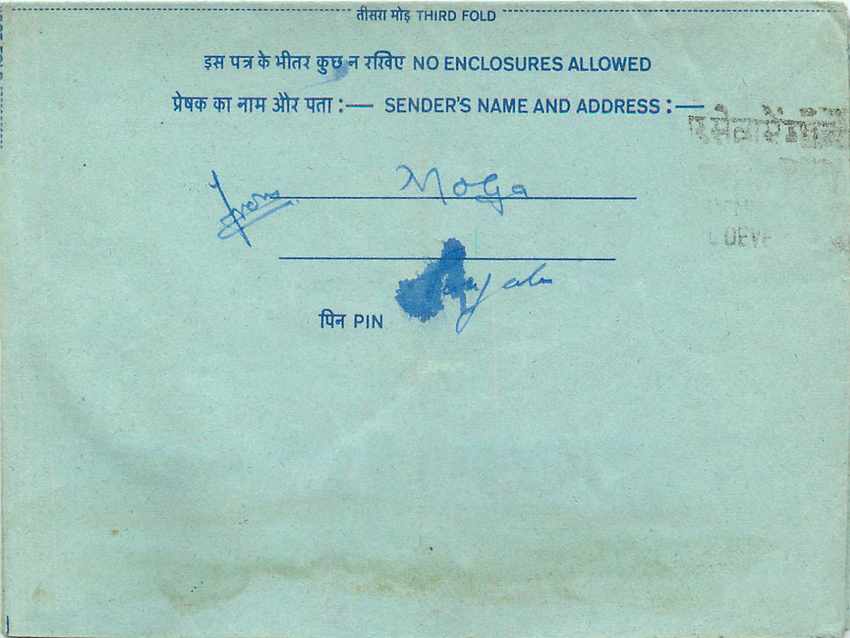 तीसरा मोड़ THIRD FOLD
इस पत्र के भीतर कुछ न रखिए NO ENCLOSURES ALLOWED
प्रेषक का नाम और पता :— SENDER'S NAME AND ADDRESS :—
From Moga
पिन PIN